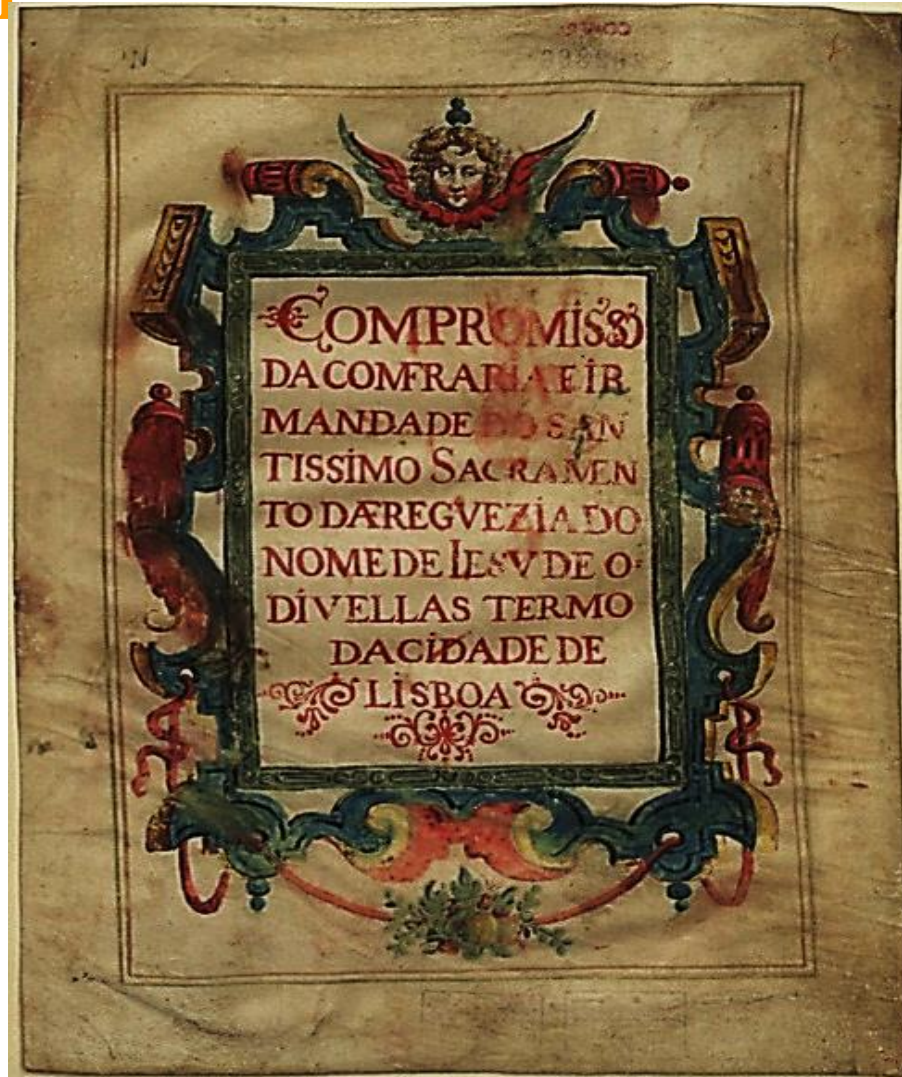 COMPROMISSO
DA COMFRARIA E IR
MANDADE DO SAN
TISSIMO SACRAMEN
TO DA FREGVEZIA DO
NOME DE IESV DE O-
DIVELLAS TERMO
DA CIDADE DE
LISBOA